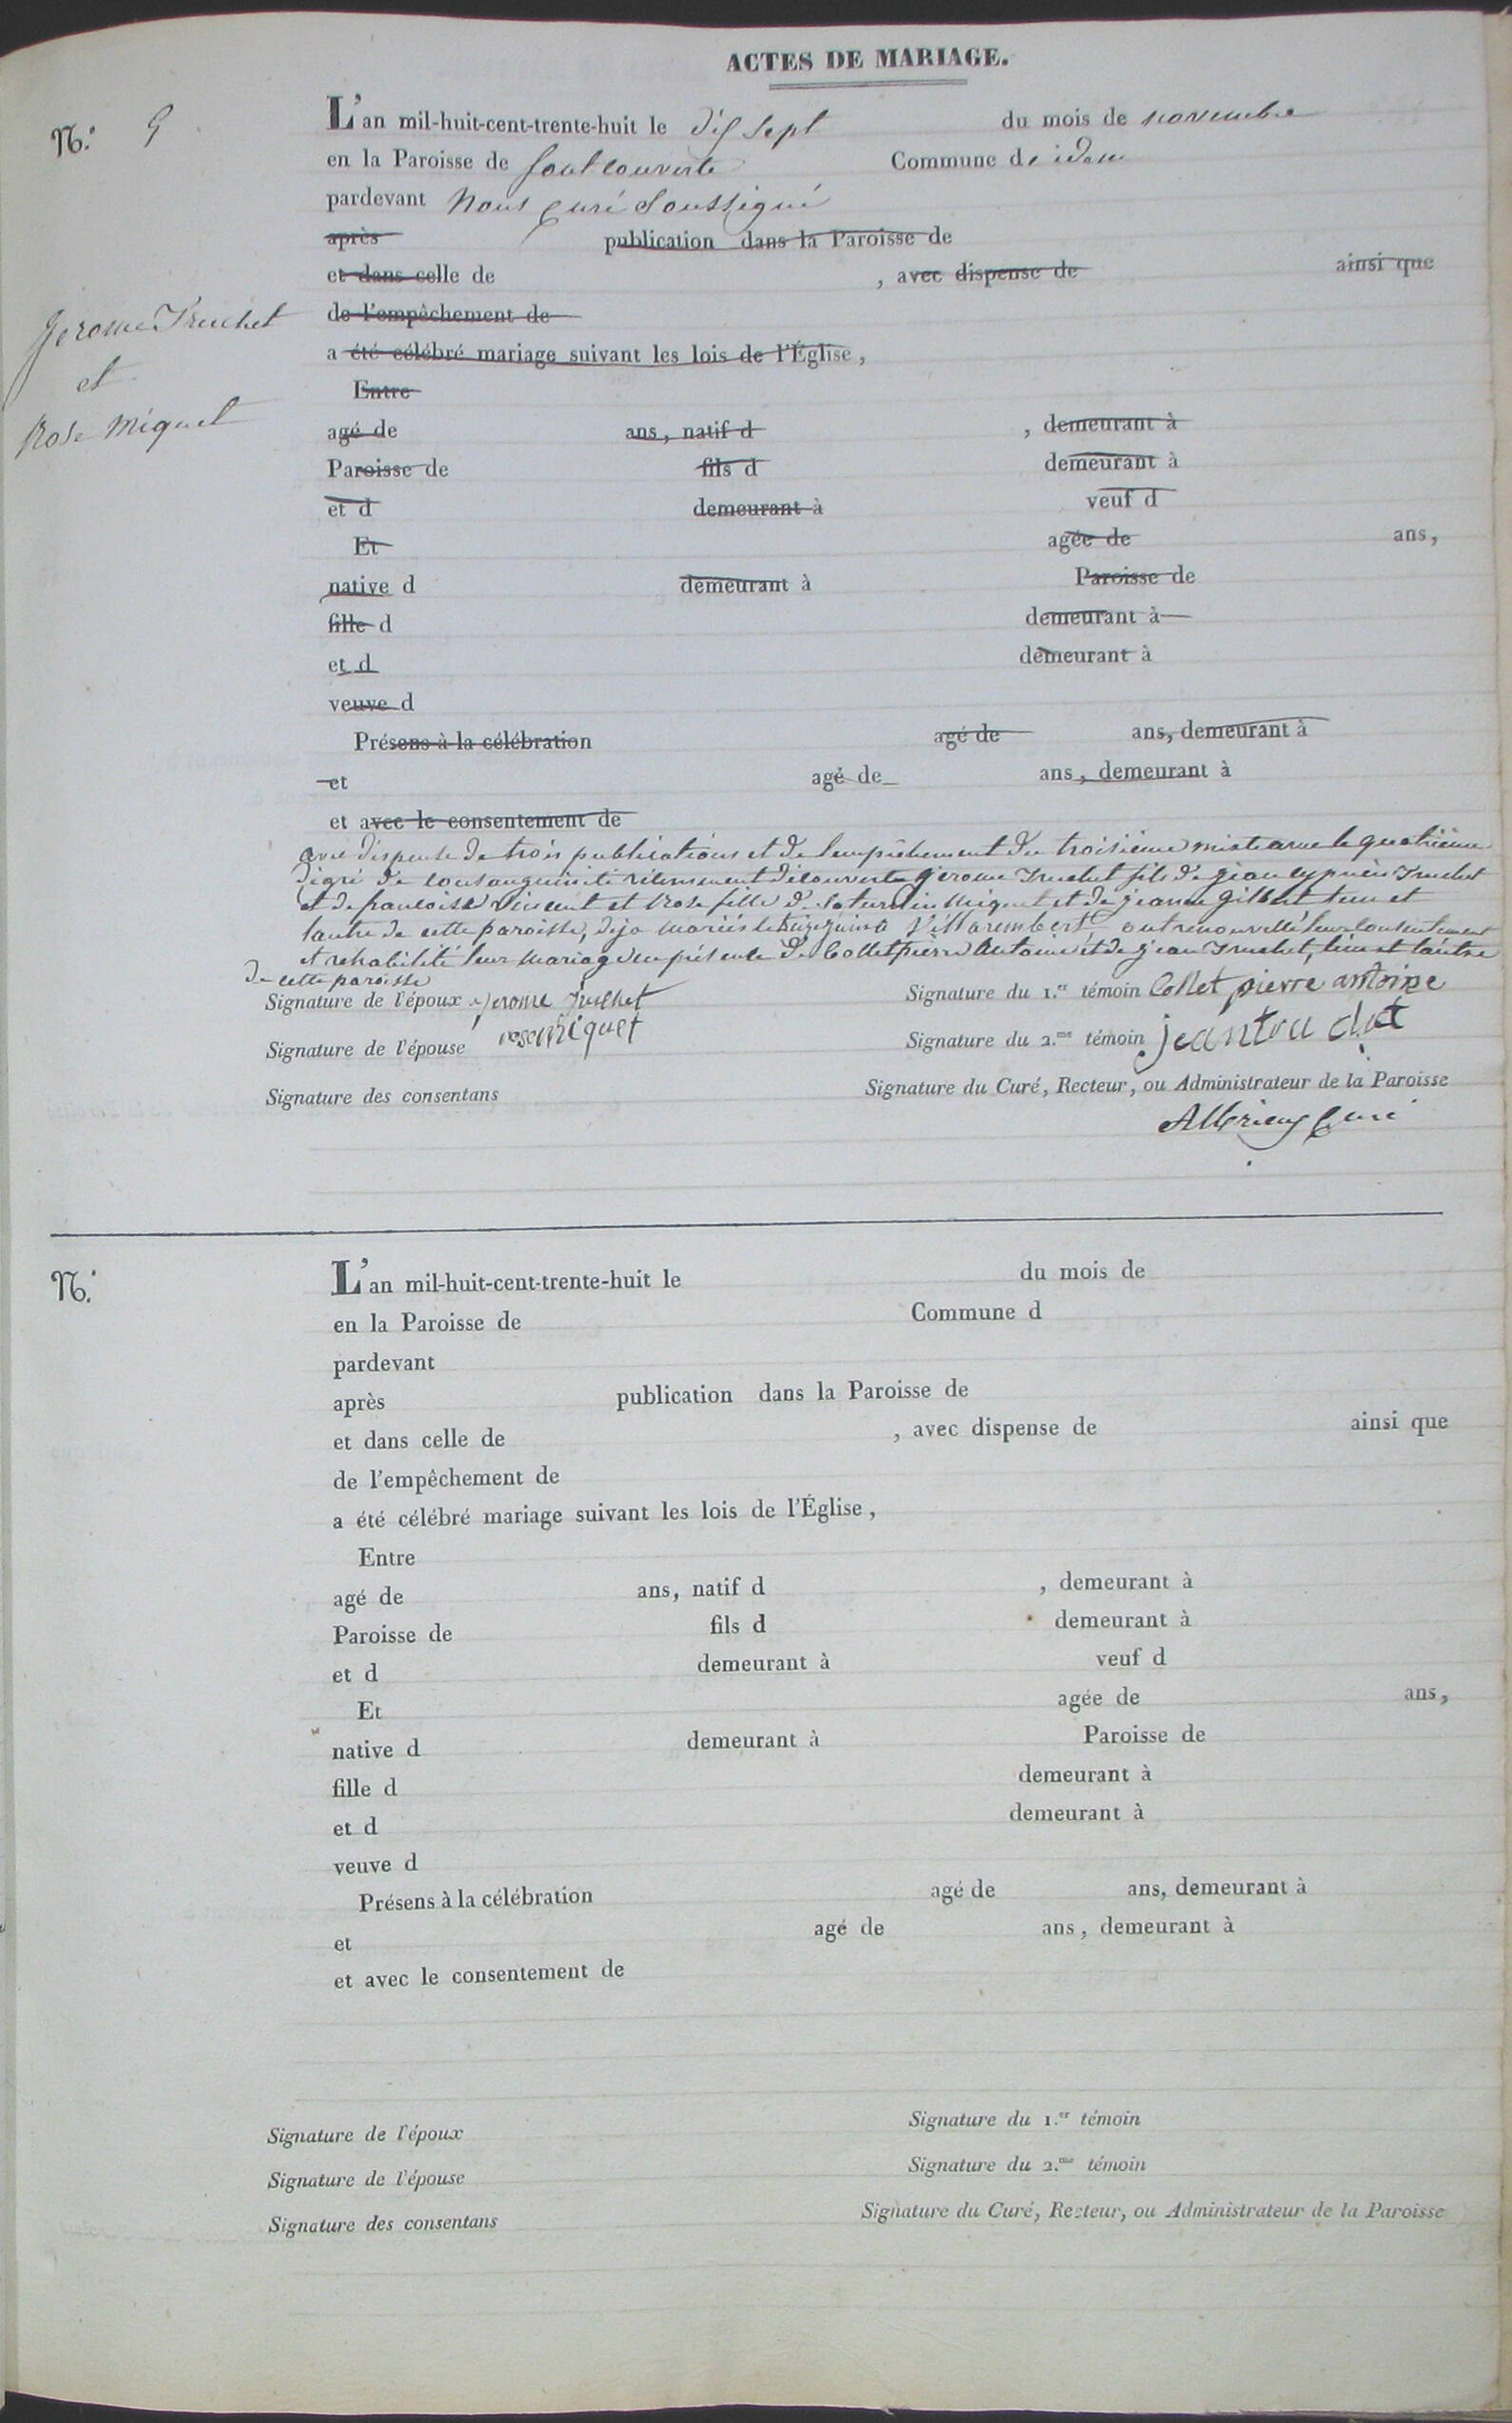 ACTES DE MARIAGE.
N.° 9
L'an mil-huit-cent-trente-huit le dix sept du mois de novembre
en la Paroisse de fontcouverte Commune de idem
pardevant Nous Curé Soussigné
après publication dans la Paroisse de
et dans celle de , avec dispense de ainsi que
de l'empêchement de
a été célébré mariage suivant les lois de l'Église,
Jerome Truchet
et
Rose Miquet
Entre
agé de ans, natif d , demeurant à
Paroisse de fils d demeurant à
et d demeurant à veuf d
Et agée de ans,
native d demeurant à Paroisse de
fille d demeurant à
et d demeurant à
veuve d
Présens à la célébration agé de ans, demeurant à
et agé de ans, demeurant à
et avec le consentement de
avec dispense de trois publications et de l'empêchement du troisième mixte avec le quatrième
degré de consanguinité récemment découverte Jerome Truchet fils de jean cyprien Truchet
et de francoise Vincent et Rose fille de Saturnin Miquet et de jeanne Gilbert l'un et
l'autre de cette paroisse, déja mariés le juin a Villarembert ont renouvellé leur consentement
et rehabilité leur mariage en présence de Collet pierre Antoine et de jean Truchet, l'un et l'autre
de cette paroisse
Signature de l'époux jerome truchet Signature du 1.er témoin Collet pierre antoine
Signature de l'épouse rose miquet Signature du 2.me témoin jean truchet
Signature des consentans Signature du Curé, Recteur, ou Administrateur de la Paroisse
Albrieux Curé
N.°
L'an mil-huit-cent-trente-huit le du mois de
en la Paroisse de Commune d
pardevant
après publication dans la Paroisse de
et dans celle de , avec dispense de ainsi que
de l'empêchement de
a été célébré mariage suivant les lois de l'Église,
Entre
agé de ans, natif d , demeurant à
Paroisse de fils d demeurant à
et d demeurant à veuf d
Et agée de ans,
native d demeurant à Paroisse de
fille d demeurant à
et d demeurant à
veuve d
Présens à la célébration agé de ans, demeurant à
et agé de ans, demeurant à
et avec le consentement de
Signature de l'époux Signature du 1.er témoin
Signature de l'épouse Signature du 2.me témoin
Signature des consentans Signature du Curé, Recteur, ou Administrateur de la Paroisse